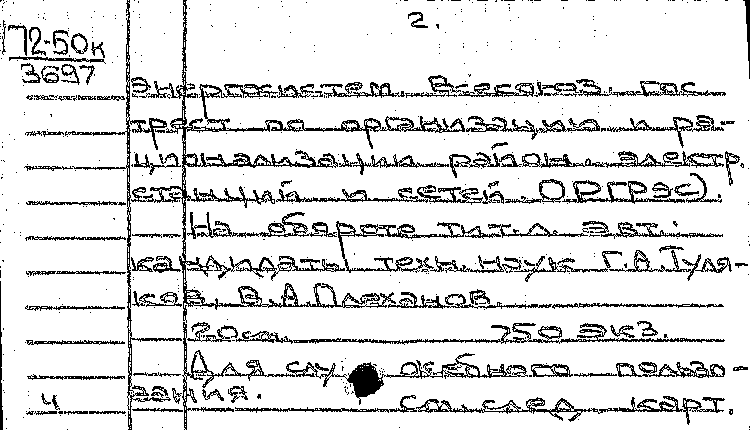 2.
72-50к
3697
энергосистем. Всесоюз. гос.
трест по организации и ра-
ционализации район. электр.
станций и сетей. ОРГРЭС).
На обороте тит. л. авт.:
кандидаты техн. наук Г.А.Туля-
ков, В.А.Плеханов.
20см. 750 экз.
Для служебного пользо-
вания.
ч см. след. карт.